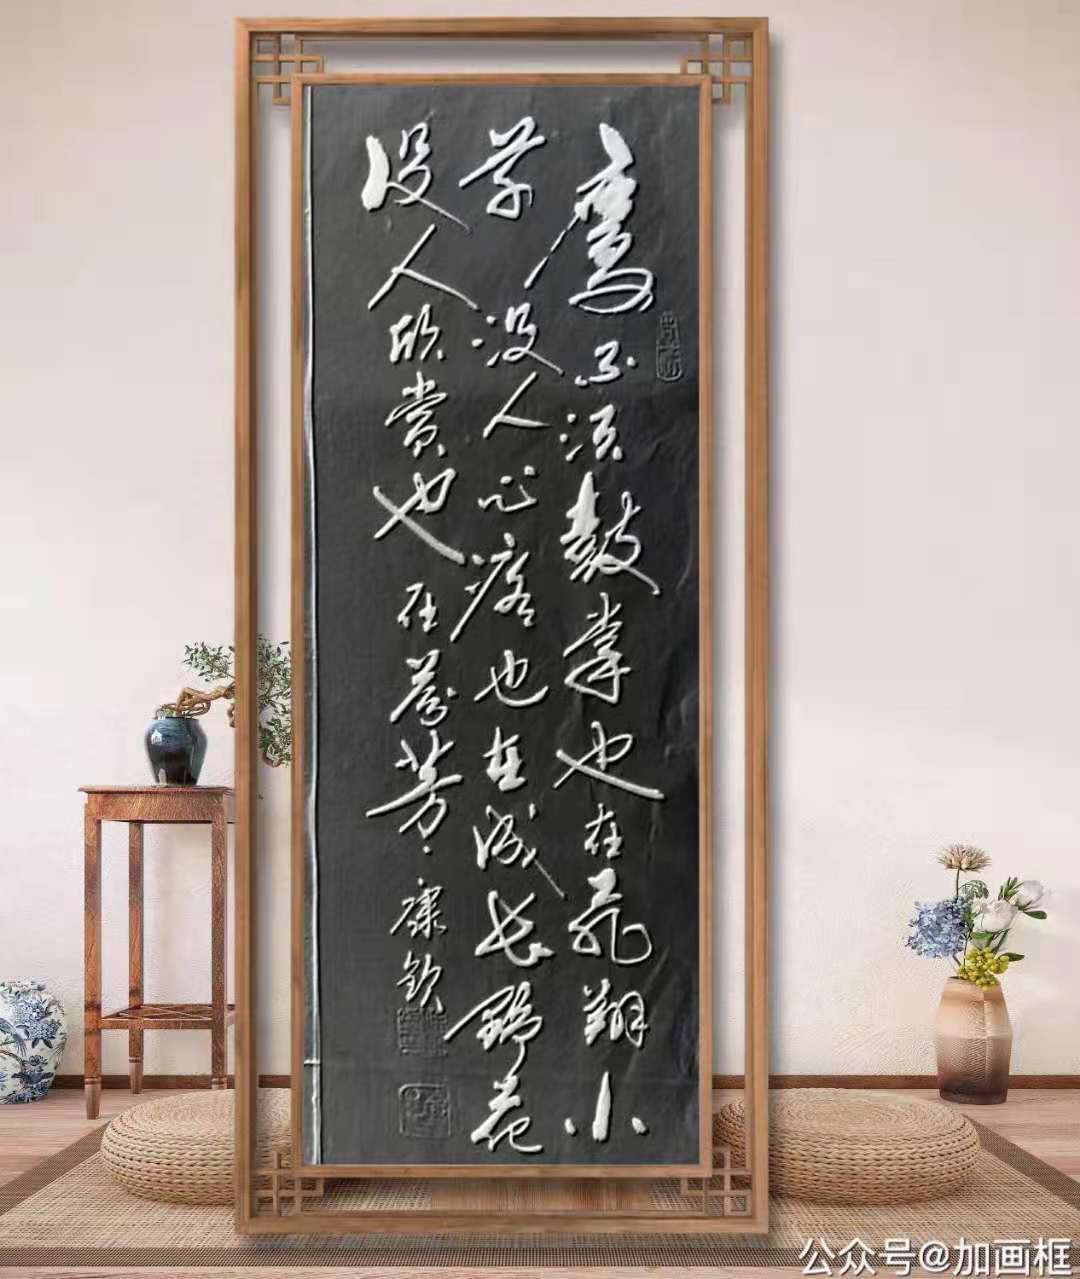 鹰不须鼓掌也在飞翔小
草没人心疼也在成长野花
没人欣赏也在芬芳 康钦
公众号@加画框